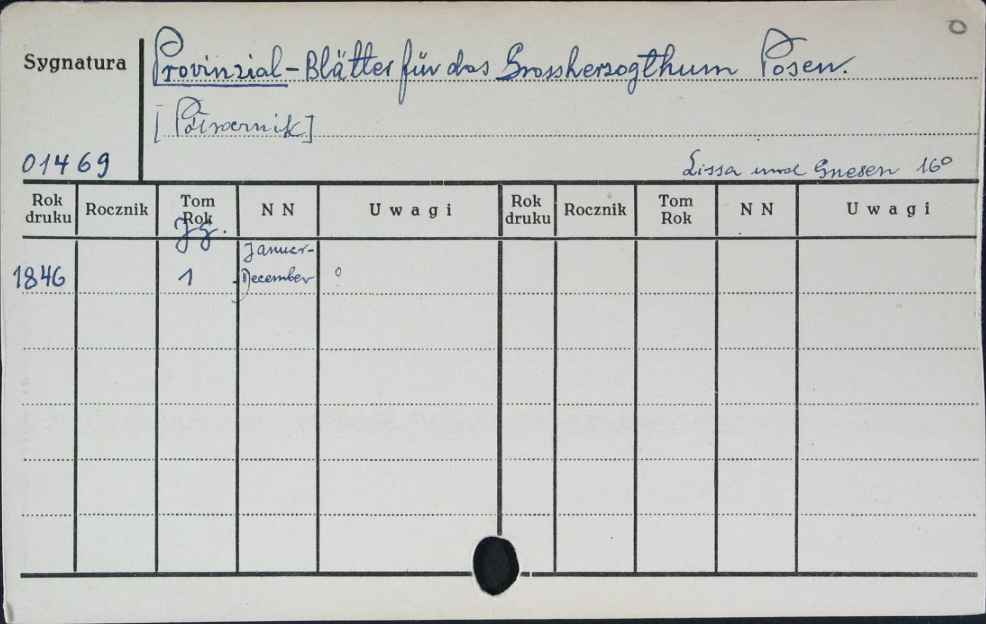 O
Sygnatura
Provinzial-Blätter für das Grossherzogthum Posen.
[Półrocznik]
01469
Lissa und Gnesen 16°
Rok druku Rocznik Tom Rok N N Uwagi Rok druku Rocznik Tom Rok N N Uwagi
Jg.
Januar-
1846 1 December °